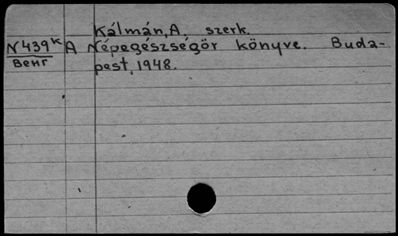 Kálmán, A. szerk.
N439K A Népegészségör könyve. Buda-
Венг pest, 1948.